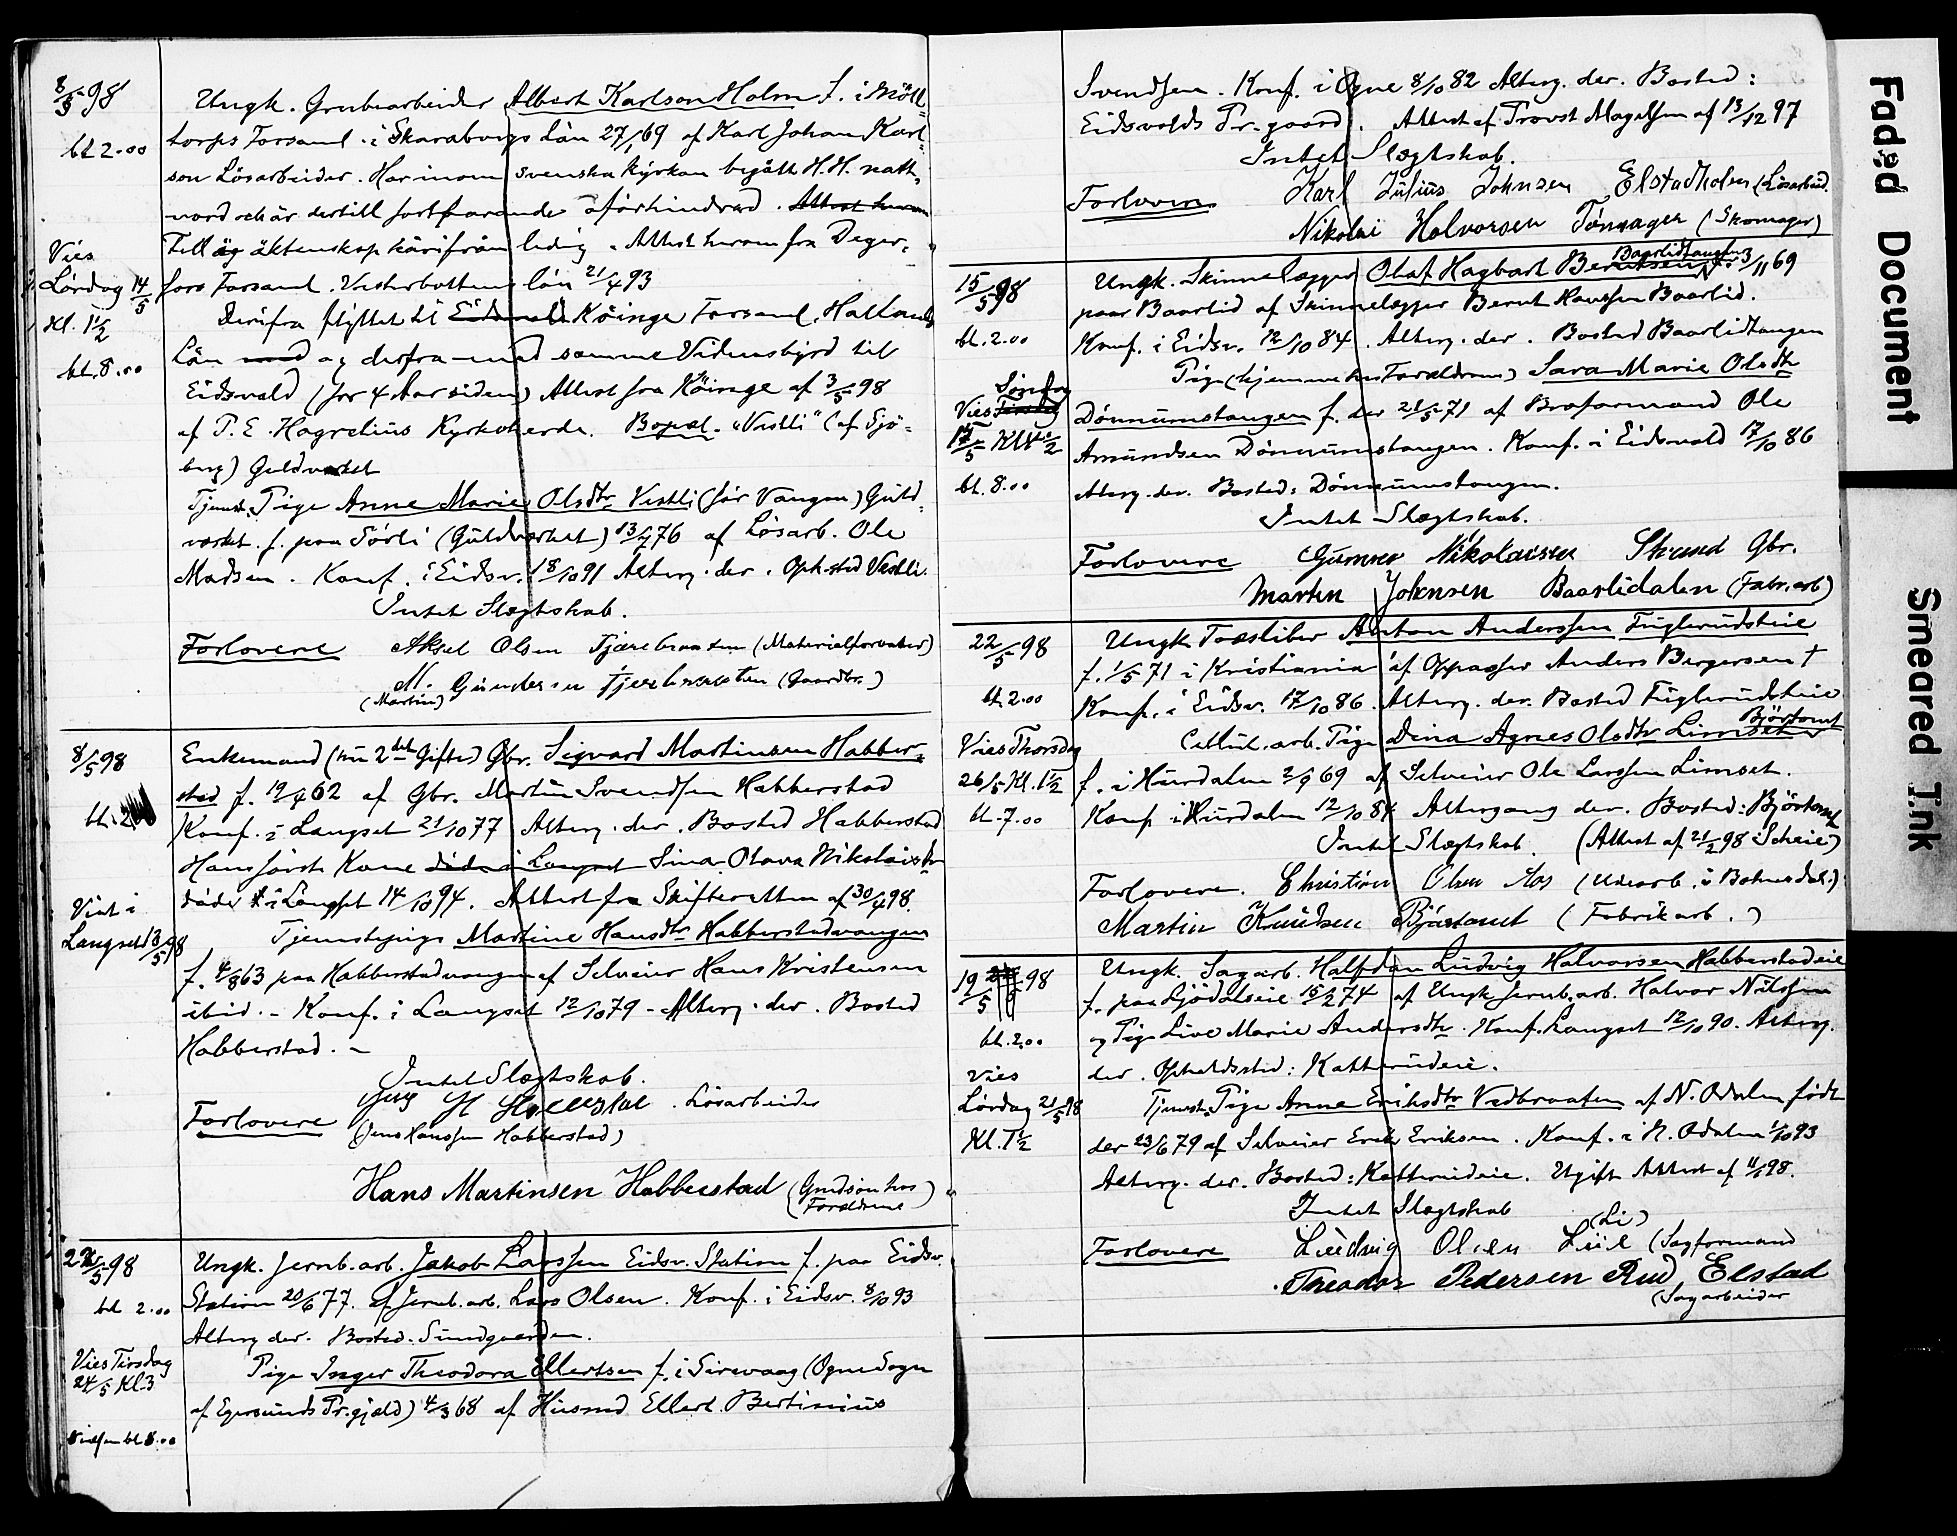 8/5 98
bt 2.00
Vies
Lördag 14/5
Kl. 1 1/2
bt. 8.00
Ungk. Grubearbeider Albert Karlson Holm f. i Möll-
torps Forsaml. i Skaraborgs Län 27/1 69 af Karl Johan Karl-
son Lösarbeider. Har inom svenska Kyrkan begått H. H. natt-
vard och är dertill fortfarande oförhindrad. Attest herom
Till äg äktenskap härifrån ledig. Attest herom fra Deger-
fors Forsaml. Vesterbottens län 21/4 93
Derifra flyttet til Eidsvold Köinge Forsaml. Hallands
Län med og derfra med samme Vidnesbyrd til
Eidsvold (for 4 Aar siden) Attest fra Köinge af 3/5 98
af P. E. Hagrelius Kyrkoherde. Bopæl. "Vestli" (af Sjö-
berg) Guldverket
Tjenest. Pige Anne Marie Olsdtr Vestli (før Vangen) Guld-
verket. f. paa Sörli (Guldverket) 13/7 76 af Lösarb. Ole
Madsen. Konf. i Eidsv. 18/10 91 Alterg. der. Oph.sted Vestli.
Intet Slægtskab.
Forlovere Aksel Olsen Tjærebraaten (Materialforvalter)
M. Gundersen Tjærebraaten (Gaardbr.)
(Martin)
8/5 98
bt. 2
Viet i
Langset 13/5 98
Enkemand (nu 2det Gifte) Gbr. Sigvard Martinsen Habber-
stad f. 19/4 62 af Gbr. Martin Svendsen Habberstad
Konf. i Langset 21/10 77 Alterg. der. Bosted Habberstad
Hans förste Kone død i Langset Sina Olava Nikolaisdtr
døde i Langset 14/10 94. Attest fra Skifteretten af 30/4 98.
Tjenestepige Martine Hansdtr Habberstadvangen
f. 4/8 63 paa Habberstadvangen af Selveier Hans Kristensen
ibid. - Konf. i Langset 12/10 79 - Alterg. der. Bosted
Habberstad. -
Intet Slægtskab.
Forlovere Jens H Habberstad. Lösarbeider
(Jens Hanssen Habberstad)
Hans Martinsen Habberstad (Grudsön hos
Forældrene)
22/5 98
bt 2.00
Vies Tirsdag
24/5 Kl. 3
bt 8.00
Ungk. Jernb. arb. Jakob Larssen Eidsv. Station f. paa Eidsv.
Station 20/6 77. af Jernb. arb. Lars Olsen. Konf. i Eidsv. 8/10 93
Alterg. der. Bosted. Sundgaarden.
Pige Inger Theodora Ellertsen f. i Sirevaag (Ogne Sogn
af Egersunds Pr.gjæld) 4/3 68 af Husmd Ellert Bertinius
Svendsen. Konf. i Ogne 8/10 82 Alterg. der. Bosted:
Eidsvolds Pr. gaard. Attest af Provst Magelsen af 13/12 97
Intet Slægtskab.
Forlovere Karl Julius Johnsen Elstadholen (Lösarbeid.
Nikolai Halvorsen Tönsager (Skomager)
15/5 98
bt. 2.00
Söndag
Vies Tirsdag
15/5 Kl 1 1/2
bt. 8.00
Baarlidtangen
Ungk. Skinnelægger Olaf Hagbart Berntsen f. 3/11 69
paa Baarlid af Skinnelægger Bernt Hanssen Baarlid.
Konf. i Eidsv. 12/10 84. Alterg. der. Bosted Baarlidtangen
Pige (hjemme hos Forældrene) Sara Marie Olsdtr
Dönnumstangen f. der 21/5 71 af Broformand Ole
Amundsen Dönnumstangen. Konf. i Eidsvold 17/10 86
Alterg. der. Bosted: Dönnumstangen.
Intet Slægtskab.
Forlovere Gunner Nikolaisen Strand Gbr.
Martin Johnsen Baarlidalen (Fabr. arb)
22/5 98
bt. 2.00
Vies Thorsdag
26/5 Kl. 1 1/2
bt. 7.00
Ungk. Træsliber Anton Anderssen Fuglerudsteie
f. 1/5 71 i Kristiania af Oppasser Anders Bergersen †
Konf. i Eidsv. 17/10 86. Alterg. der. Bosted Fuglerudsteie
Björtomt
Cellul. arb. Pige Dina Agnes Olsdtr Limset
f. i Hurdalen 2/9 69 af Selveier Ole Larssen Limset.
Konf i Hurdalen 12/10 84 Altergang der. Bosted: Björtomt
Intet Slægtskab. (Attest af 21/2 98 Scheie)
Forlovere. Christian Olsen Aas (Udearb. i Bohnsdal.)
Martin Knudsen Björtomt (Fabrikarb.)
19/5 98
bt. 2.00
Vies
Lördag 21/5 98
Kl. 1 1/2
Ungk. Sagarb. Halfdan Ludvig Halvorsen Habberstadeie
f. paa Sjödalseie 15/2 74 af Ungk Jernb. arb. Halvor Nilssen
og Pige Live Marie Andersdtr. Konf. Langset 12/10 90. Alterg.
der. Opholdssted: Katterudeie.
Tjenest. Pige Anne Eriksdtr Vedbraaten af N. Odalen født
der 23/6 79 af Selveier Erik Eriksen. Konf. i N. Odalen 1/10 93
Alterg. der. Bosted: Katterudeie. Ugift Attest af 4/5 98.
Intet Slægtskab
(Li)
Forlovere Ludvig Olsen Liie (Sagformand
Theodor Pedersen Rud, Elstad
(Sagarbeider
Faded Document
Smeared Ink